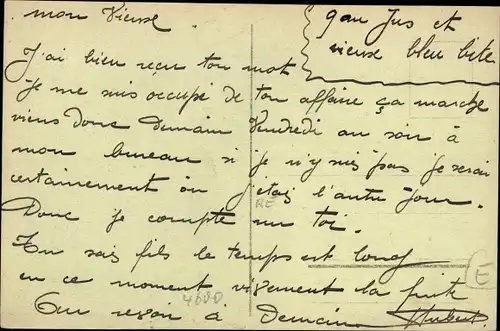 mon Vieux.
J'ai bien reçu ton mot
je me suis occupé de ton affaire ça marche
viens donc Demain Vendredi au soir à
mon bureau si je n'y suis pas je serai
certainement où j'étais l'autre jour.
Donc je compte sur toi.
Tu sais fils le temps est long
en ce moment vivement la fuite
Au revoir à Demain
Hubert
Jus et
vieux bleu bite
RE
4600
E